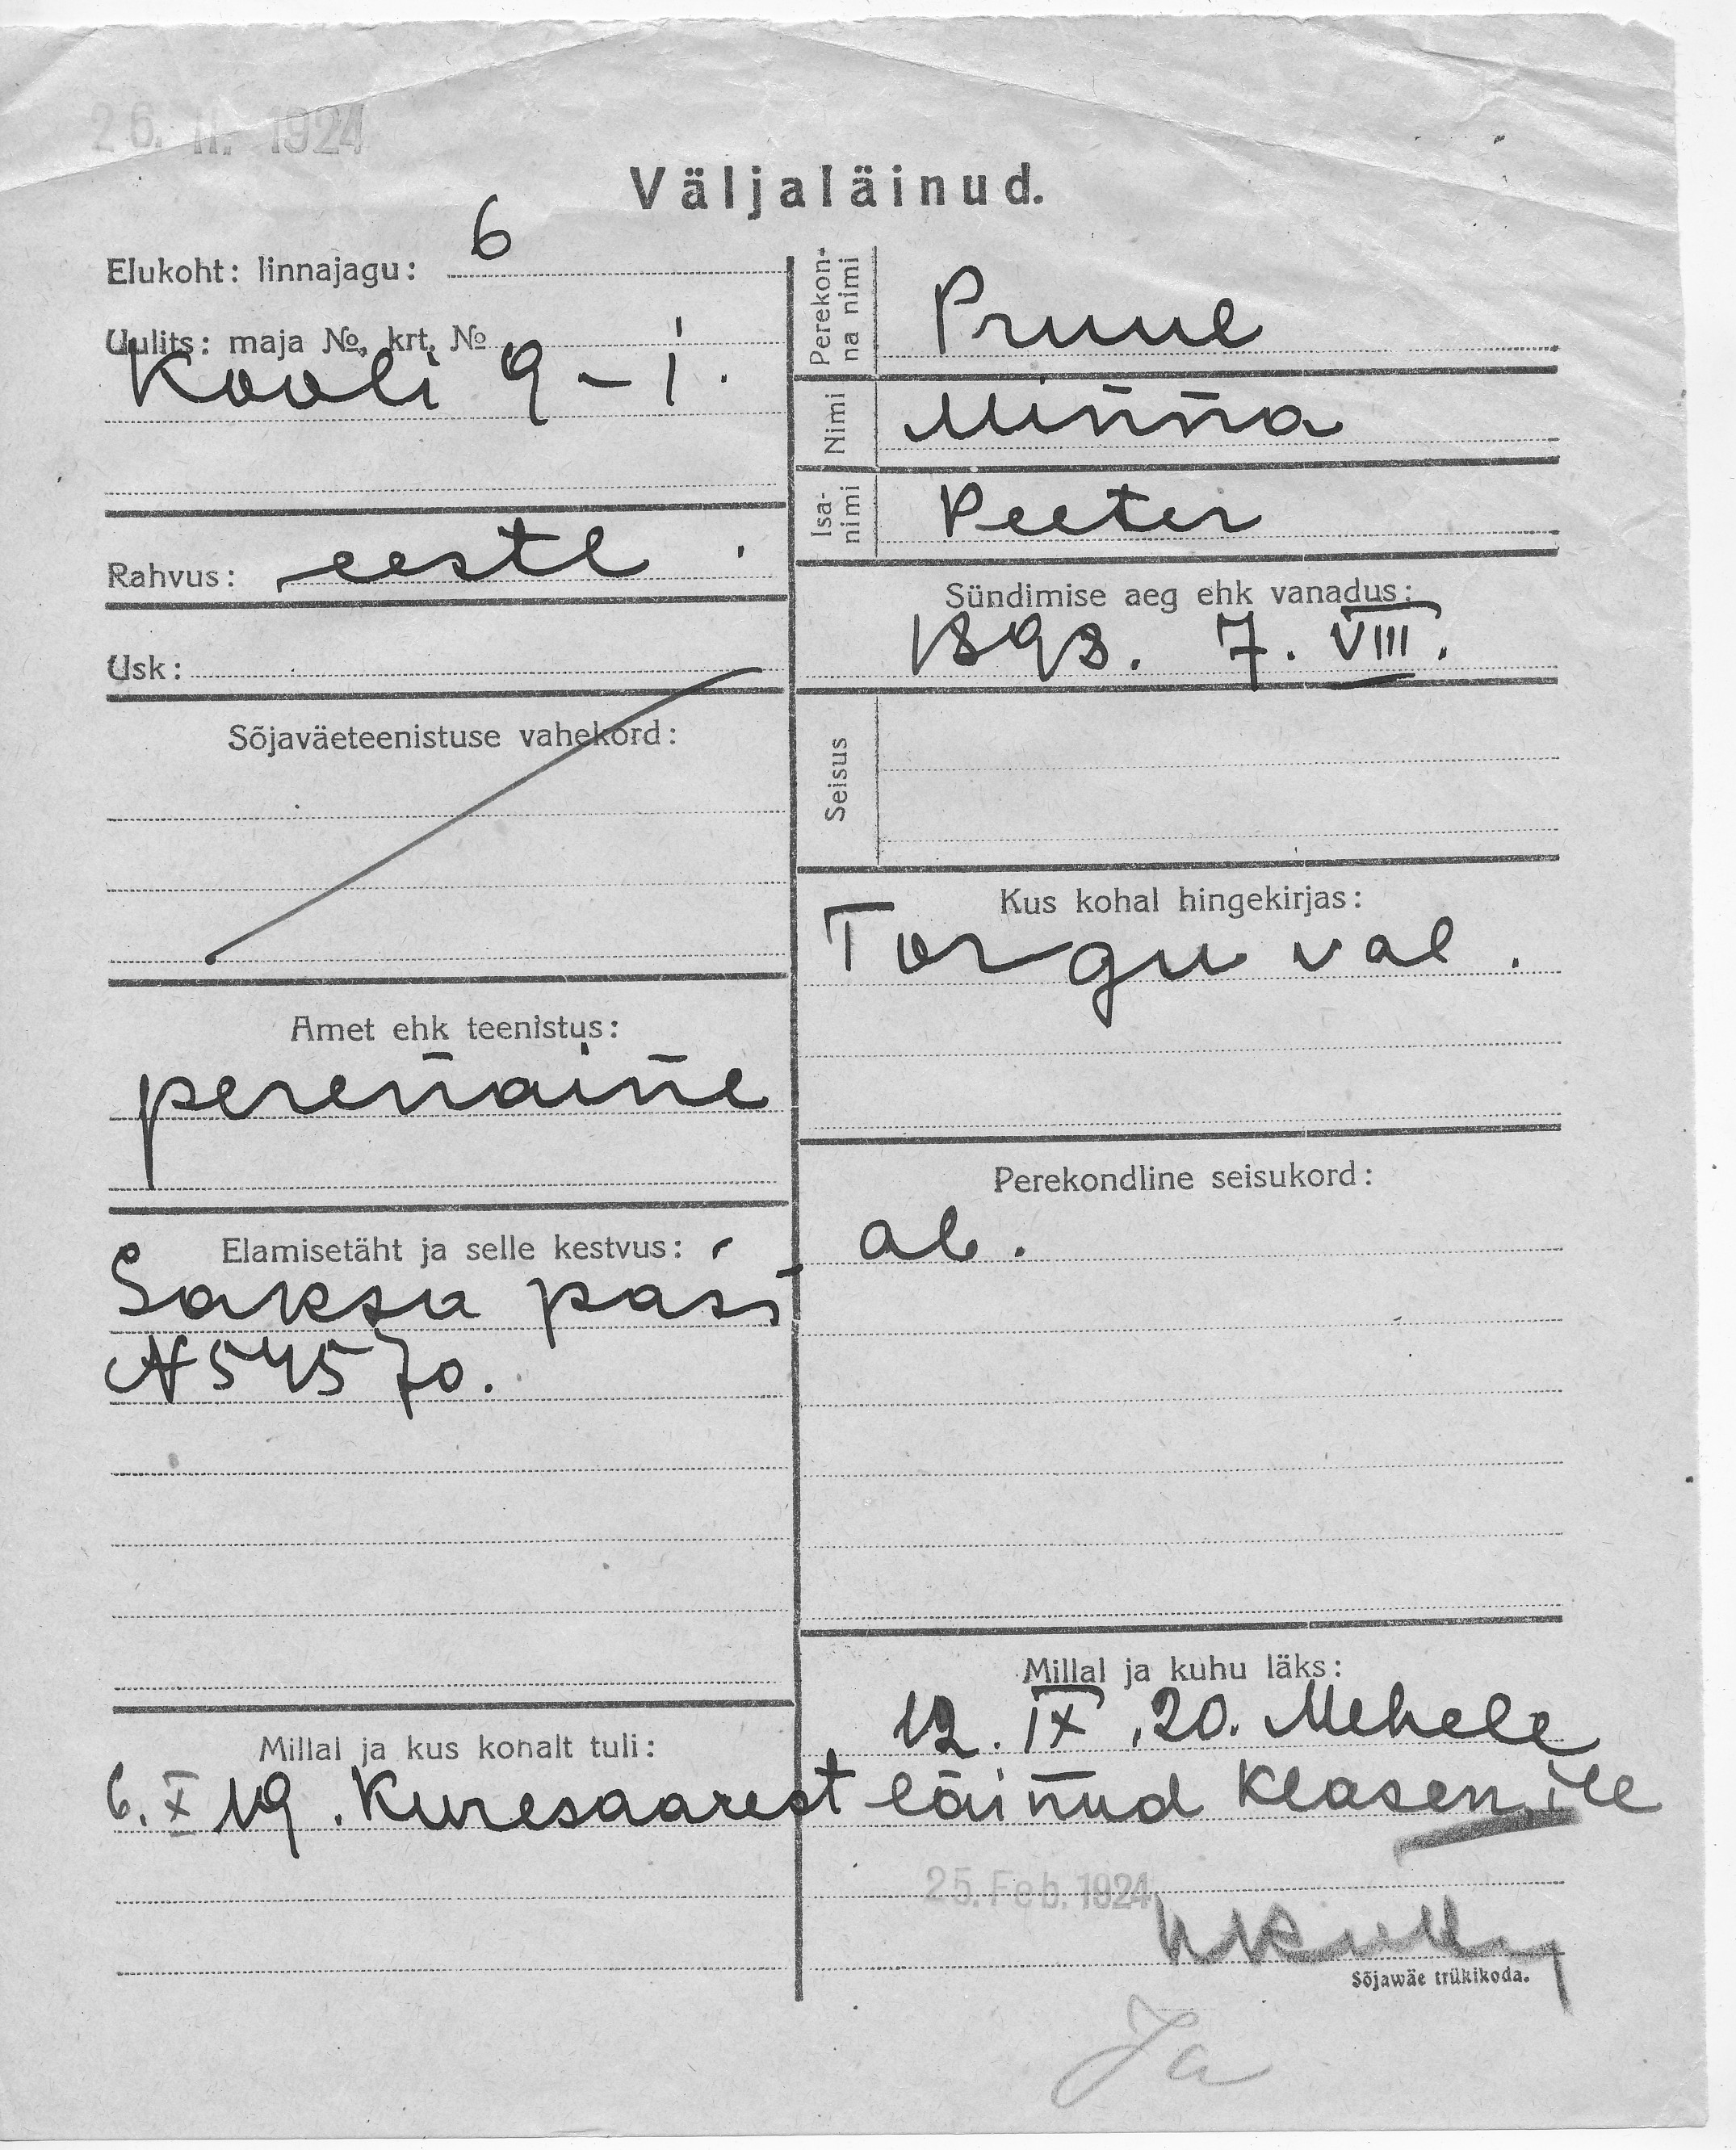 26. II. 1924
Väljaläinud.
Elukoht: linnajagu: 6
Uulits: maja №, krt. №
Kooli 9 – 1.
Rahvus: eestl.
Usk:
Sõjaväeteenistuse vahekord:
Amet ehk teenistus:
perenaine
Elamisetäht ja selle kestvus:
Saksa pass
N 54570.
Millal ja kus kohalt tuli:
6. X 19. Kuresaarest
Perekonna nimi Pruul
Nimi Minna
Isanimi Peeter
Sündimise aeg ehk vanadus:
1893. 7. VIII.
Seisus
Kus kohal hingekirjas:
Torgu val.
Perekondline seisukord:
ab.
Millal ja kuhu läks:
12. IX. 20. Mehele
läinud Klasen'ile
25. Feb. 1924
Sõjawäe trükikoda.
Ja